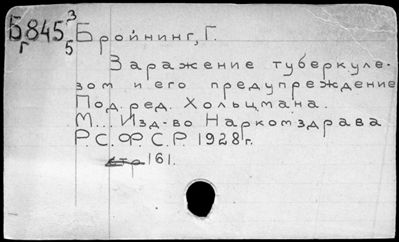 Б845 3/5 Бройнинг, Г.
Г
Заражение туберкуле-
зом и его предупреждение
Под. ред. Хольцмана.
М... Изд-во Наркомздрава
Р.С.Ф.С.Р. 1928 г.
стр 161.